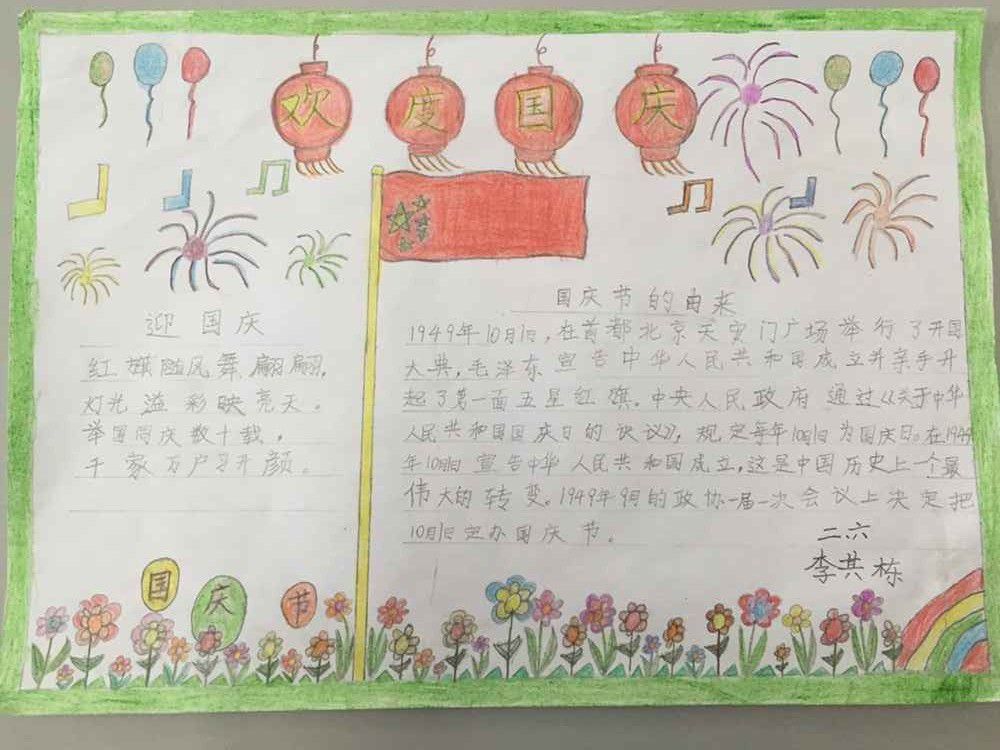 欢度国庆
迎国庆
红旗随风舞翩翩,
灯光溢彩映亮天。
举国同庆数十载,
千家万户习开颜。
国庆节的由来
1949年10月1日,在首都北京天安门广场举行了开国
大典,毛泽东宣告中华人民共和国成立并亲手升
起了第一面五星红旗。中央人民政府通过《关于中华
人民共和国国庆日的决议》,规定每年10月1日为国庆日。在1949
年10月1日宣告中华人民共和国成立,这是中国历史上一个最
伟大的转变。1949年9月的政协一届一次会议上决定把
10月1日定办国庆节。
二六
李共栋
国庆节